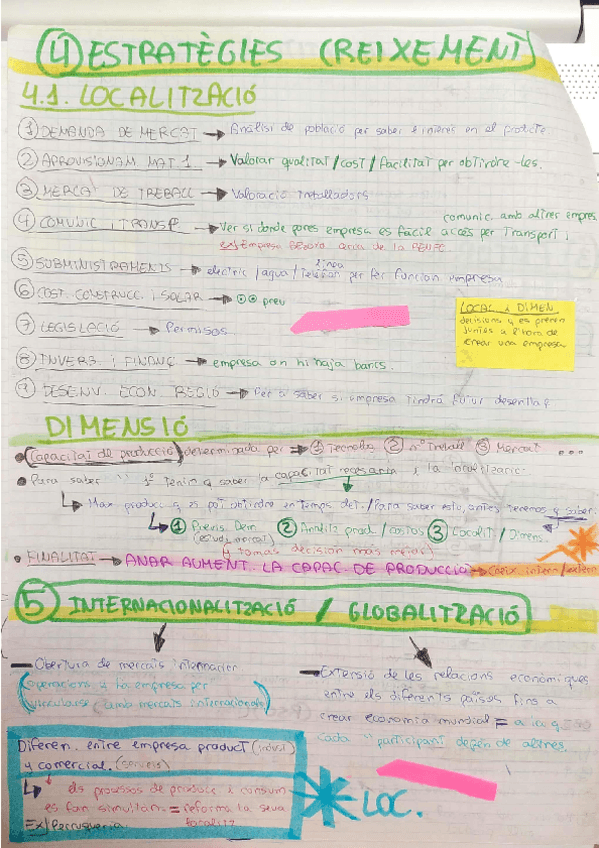 ④ ESTRATÈGIES (REIXEMENT)
4.1. LOCALITZACIÓ
① DEMANDA DE MERCAT → Anàlisi de població per saber interes en el producte
② APROVISIONAM MAT 1 → Valorar qualitat / cost / facilitat per obtindre-les.
③ MERCAT DE TREBALL → Valoració treballadors
④ COMUNIC i TRANSP → Ver si donde pones empresa es fàcil accés per transport i
comunic. amb altres empres.
ex/ Empresa
⑤ SUBMINISTRAMENTS → electric / aigua / telefon per fer funcion empresa
linea
⑥ COST. CONSTRUCC i SOLAR → preu
⑦ LEGISLACIÓ → Permisos
⑧ INVERS. i FINANÇ → empresa on hi haja bancs.
⑨ DESENV. ECON REGIÓ → Per a saber si empresa tindrá futur
LOCAL i DIMEN.
decisions q es prenen
juntes a l'hora de
crear una empresa
DIMENSIÓ
• Capacitat de producció determinada per → ① Tecnolog ② nº treball ③ Mercat ...
• Para saber 1º Tenim q saber la capacitat necesaria i la localitzacio.
↳ Max produc q es pot obtindre en temps det. / Para saber esto, antes tenemos q saber:
↳ ① Previs Dem ② Analitz prod / costos ③ Localit / Dimens.
(estudi mercat)
(y tomas decisión más
• FINALITAT → ANAR AUMENT. LA CAPAC. DE PRODUCCIÓ → Creix intern / extern
⑤ INTERNACIONALITZACIÓ / GLOBALITZACIÓ
— Obertura de mercats internacion
(operacions q la empresa per
vincularse amb mercats internacionals)
— Extensió de les relacions econòmiques
entre els diferents països fins a
crear economia mundial = a la q
cada participant depén de altres.
Diferen. entre empresa product (movil)
y comercial. (serveis)
↳ els processos de producc i consum
es fan simultan = reforma la seua
Ex/ Perruqueria. localitz.
LOC.